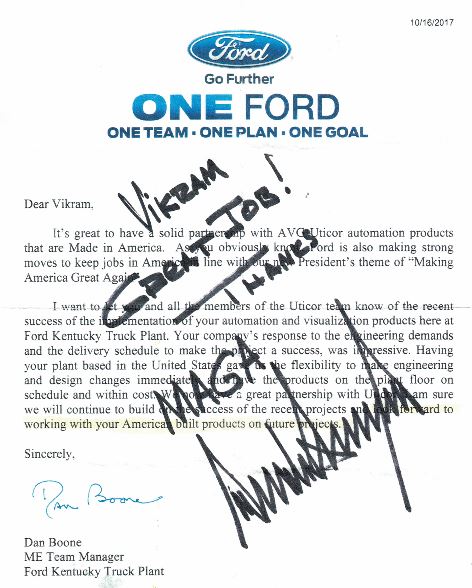 10/16/2017
Ford
Go Further
ONE FORD
ONE TEAM • ONE PLAN • ONE GOAL
VIKRAM
GREAT JOB!
THANKS
MAGA
Dear Vikram,
It's great to have a solid partnership with AVG Uticor automation products
that are Made in America. As you obviously know Ford is also making strong
moves to keep jobs in America in line with our new President's theme of "Making
America Great Again
I want to let you and all the members of the Uticor team know of the recent
success of the implementation of your automation and visualization products here at
Ford Kentucky Truck Plant. Your company's response to the engineering demands
and the delivery schedule to make the project a success, was impressive. Having
your plant based in the United States gave us the flexibility to make engineering
and design changes immediately and have the products on the plant floor on
schedule and within cost. We now have a great partnership with Uticor. I am sure
we will continue to build on the success of the recent projects and look forward to
working with your American built products on future projects.
Sincerely,
Dan Boone
Dan Boone
ME Team Manager
Ford Kentucky Truck Plant